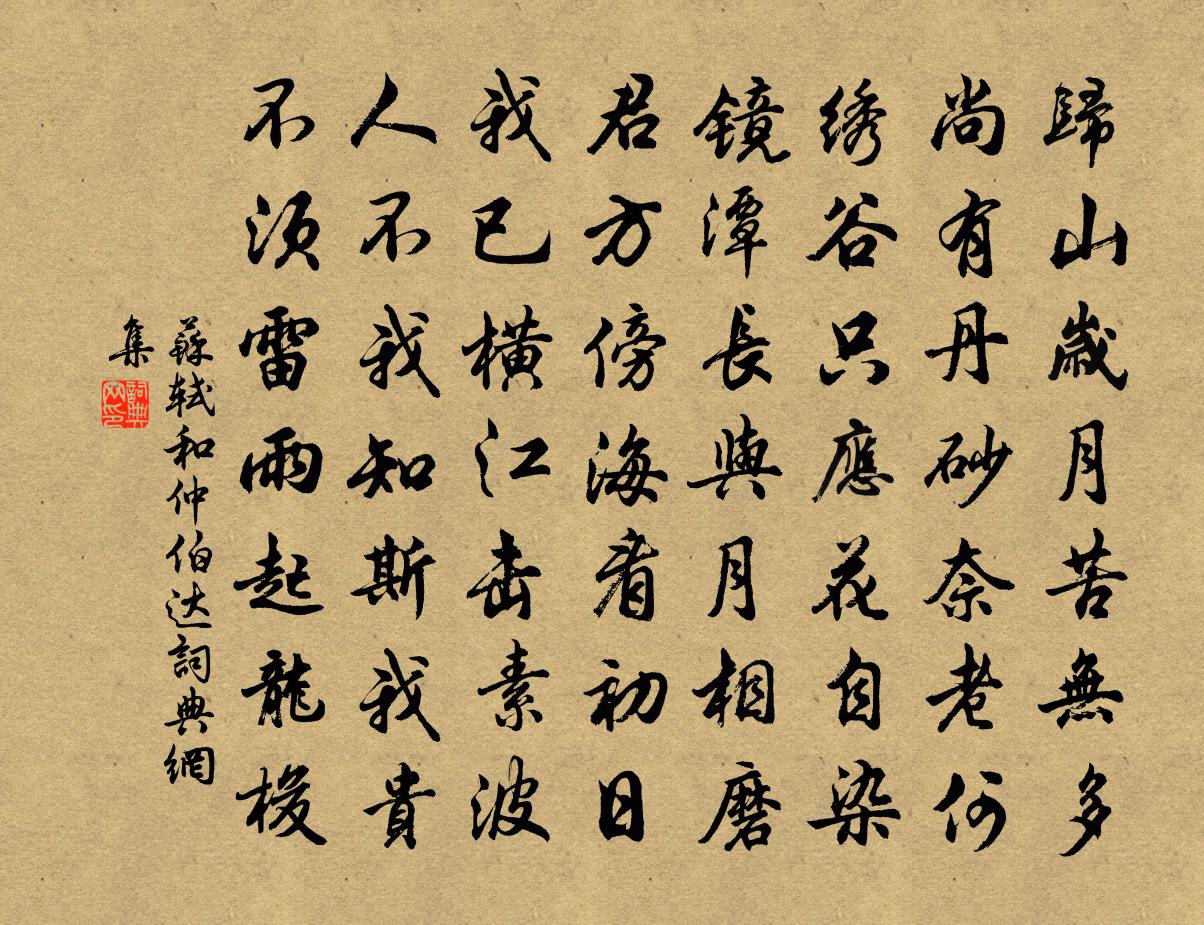 歸山歲月苦無多
尚有丹砂奈老何
绣谷只應花自染
镜潭長與月相磨
君方傍海看初日
我已橫江击素波
人不我知斯我貴
不须雷雨起龍梭
蘇轼和仲伯达詞典網
集
詞典网印